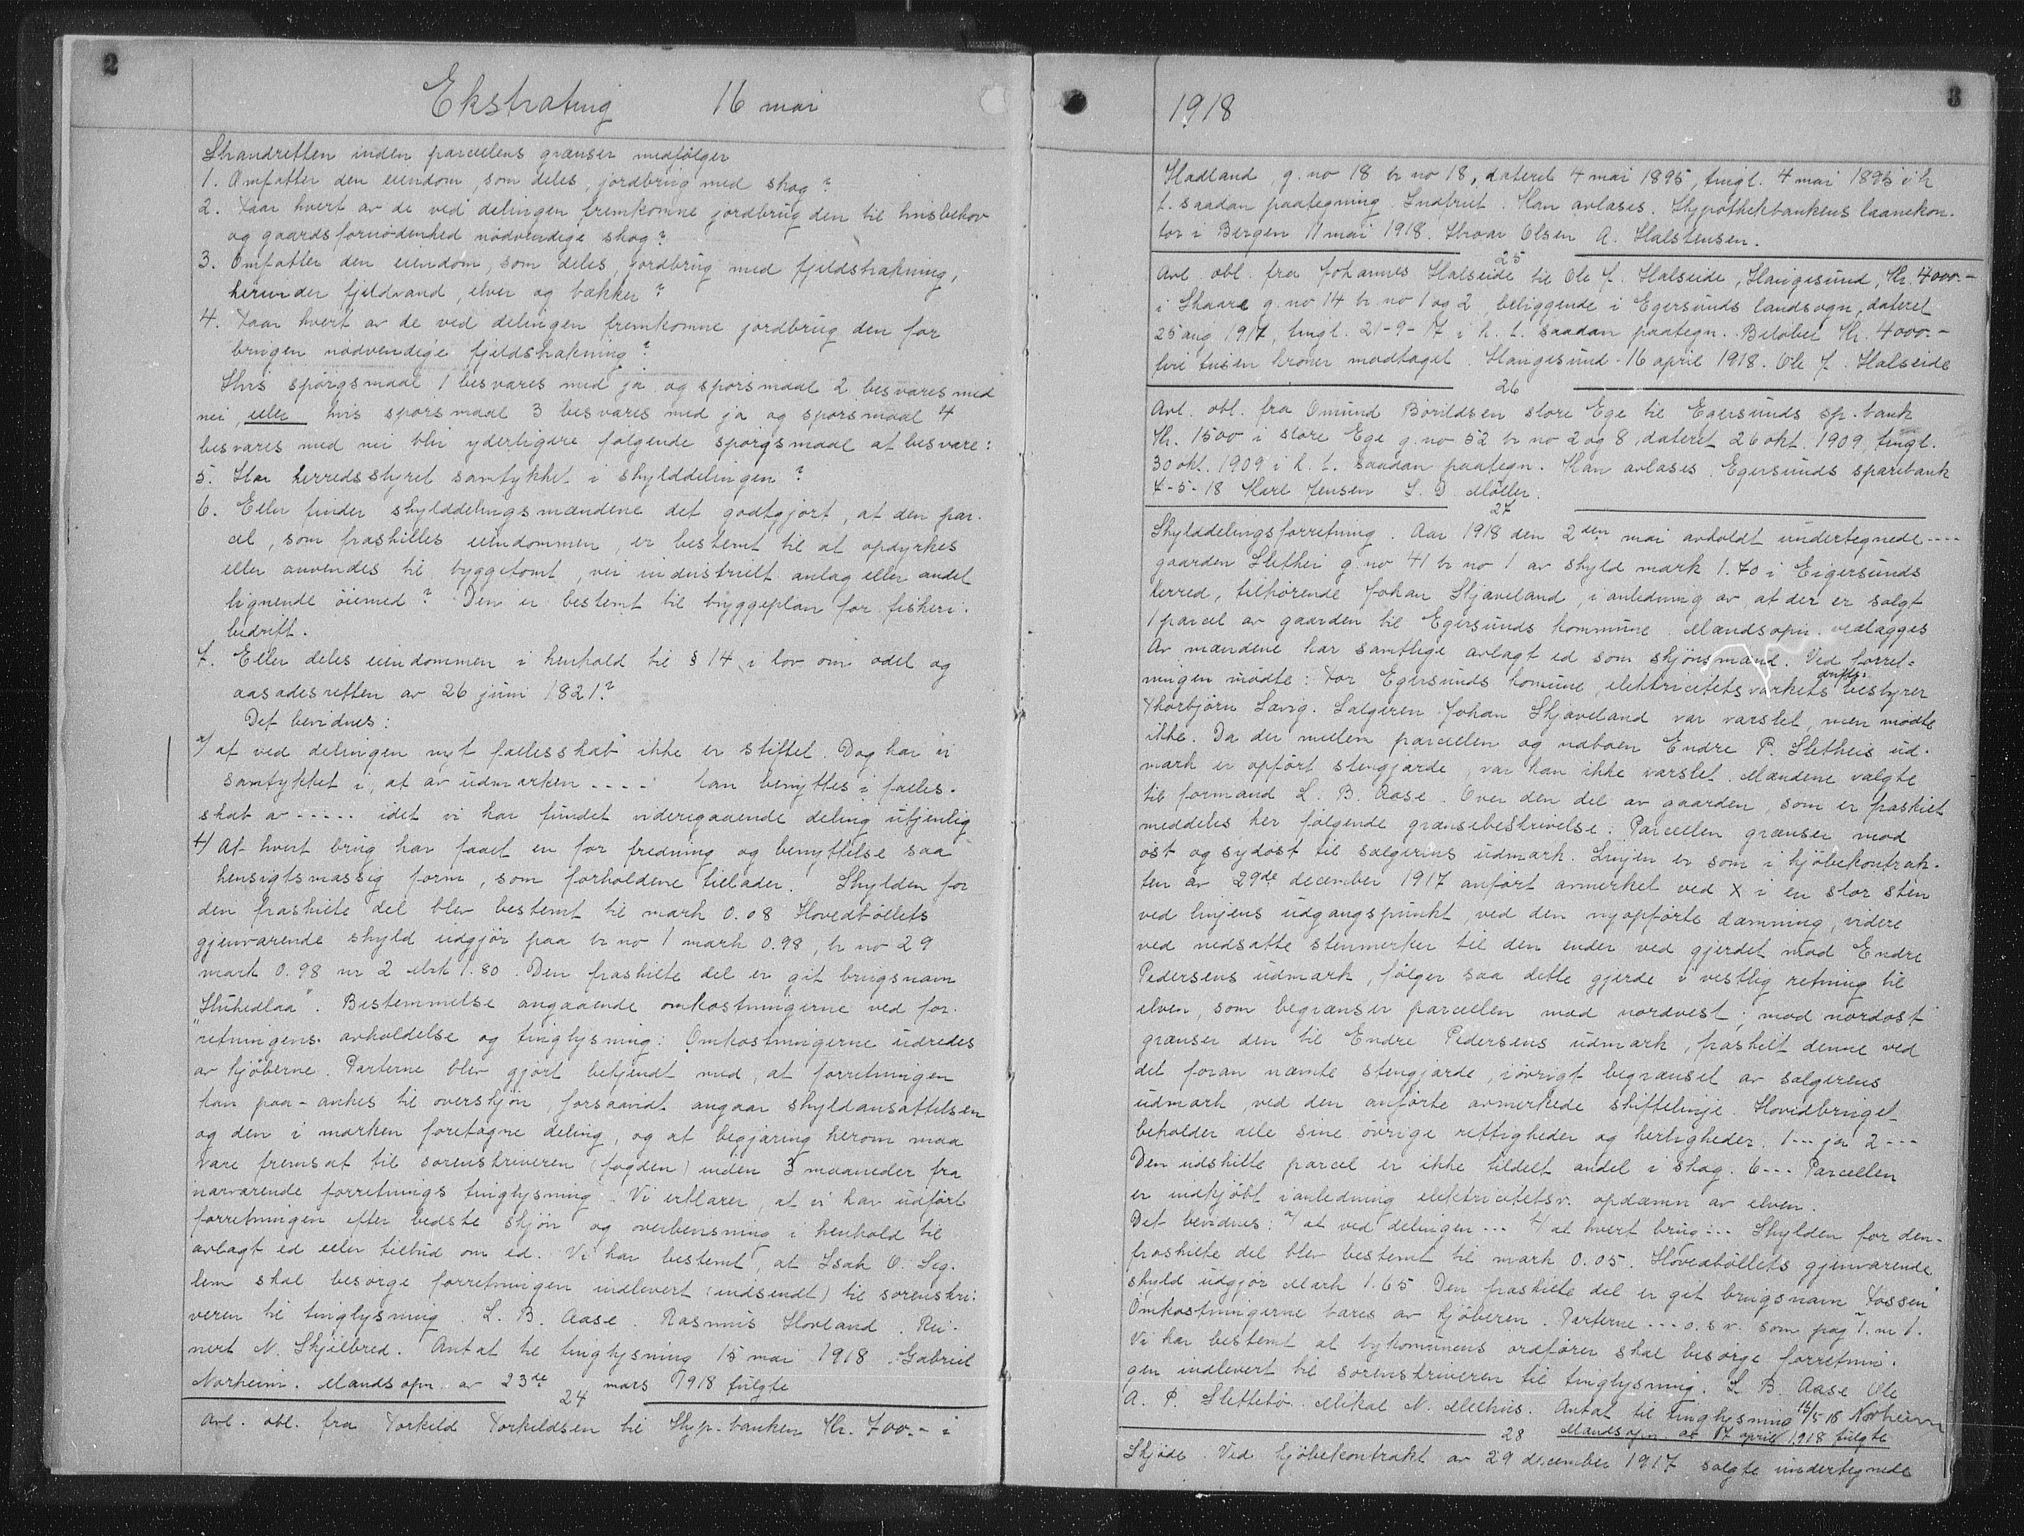 2
Ekstrating 16 mai
Strandretten inden parcelens grænser medfølger
1. Omfatter den eiendom, som deles, jordbrug med skog?
2. Faar hvert av de ved delingen fremkomne jordbrug den til husbehov
og gaardsfornødenhed nødvendige skog?
3. Omfatter den eiendom, som deles, jordbrug med fjeldstrækning,
herunder fjeldvand, elver og bækker?
4. Faar hvert av de ved delingen fremkomne jordbrug den for
brugen nødvendige fjeldstrækning?
Hvis spørgsmaal 1 besvares med ja og spørsmaal 2 besvares med
nei, eller hvis spørsmaal 3 besvares med ja og spørsmaal 4
besvares med nei blir yderligere følgende spørgsmaal at besvare:
5. Har herredsstyret samtykket i skylddelingen?
6. Eller finder skylddelingsmændene det godtgjort, at den par-
cel, som fraskilles eiendommen, er bestemt til at opdyrkes
eller anvendes til byggetomt, vei industrielt anlæg eller andet
lignende øiemed? Den er bestemt til byggeplan for fiskeri-
bedrift.
7. Eller deles eiendommen i henhold til § 14 i lov om odel og
aasædesretten av 26 juni 1821?
Det bevidnes:
a/ at ved delingen nyt fællesskab ikke er stiftet. Dog har vi
samtykket i, at av udmarken - - - - kan benyttes i fælles-
skab av - - - - - idet vi har fundet videregaaende deling utjenlig
b/ At hvert brug har faaet en for fredning og benyttelse saa
hensigtsmæssig form, som forholdene tillader. Skylden for
den fraskilte del blev bestemt til mark 0.08 Hovedbøllets
gjenværende skyld udgjør paa br no 1 mark 0.98, br no 29
mark 0.98 nr 2 mrk 1.80. Den fraskilte del er git brugsnavn
"Stuhedlaa". Bestemmelse angaaende omkostningerne ved for-
retningens avholdelse og tinglysning: Omkostningerne udredes
av kjøberne. Parterne blev gjort bekjendt med, at forretningen
kan paa-ankes til overskjøn, forsaavidt angaar skyldansættelsen
og den i marken foretagne deling, og at begjæring herom maa
være fremsat til sorenskriveren (fogden) inden 3 maaneder fra
nærværende forretnings tinglysning. Vi erklærer, at vi har udført
forretningen efter bedste skjøn og overbevisning i henhold til
avlagt ed eller tilbud om ed. Vi har bestemt, at Isak O. Seg-
lem skal besørge forretningen indlevert (indsendt) til sorenskri-
veren til tinglysning. L. B. Aase. Rasmus Hovland. Rei-
nert N. Skjelbred. Antat til tinglysning 15 mai 1918. Gabriel
Norheim. Mandsopn. av 23de mars 1918 fulgte
24
Avl. obl. fra Torkild Torkildsen til Hyp-banken Kr. 700.- i
3
1918
Hadland, g. no 18 br no 18, dateret 4 mai 1895, tingl. 4 mai 1895 i h
t. saadan paategning. Indbrut. Kan avlæses. Hypothekbankens laanekon-
tor i Bergen 11 mai 1918. Hroar Olsen A. Halstensen.
25
Avl. obl. fra Johannes Halseide til Ole J. Halseide, Haugesund, Kr. 4000.-
i Skaara g. no 14 br no 1 og 2, beliggende i Egersunds landsogn, dateret
25 aug 1917, tingl. 21-9-17 i h. t. saadan paategn. Beløbet Kr. 4000.-
fire tusen kroner modtaget. Haugesund 16 april 1918. Ole J. Halseide
26
Avl. obl. fra Omund Børildsen store Ege til Egersunds sp.-bank
Kr. 1500 i store Ege g. no 52 br no 2 og 8, dateret 26 okt. 1909, tingl.
30 okt. 1909 i h. t. saadan paategn. Kan avlæses. Egersunds sparebank
4-5-18 Karl Jensen L. D Møller.
27
Skylddelingsforretning. Aar 1918 den 2den mai avholdt undertegnede - - - -
gaarden Slethei g. no 41 br no 1 av skyld mark 1.70 i Eigersunds
herred, tilhørende Johan Skjæveland, i anledning av, at der er solgt
1 parcel av gaarden til Egersunds kommune. Mandsopn. vedlægges
Av mændene har samtlige avlagt ed som skjønsmænd. Ved forret-
ningen mødte: For Egersunds komune, elektricitetsværkets drifts-bestyrer
Thorbjørn Søvig. Sælgeren Johan Skjæveland var varslet, men mødte
ikke. Da der mellem parcellen og naboen Endre P. Sletheis ud-
mark er opført stengjærde, var han ikke varslet. Mændene valgte
til formand L. B. Aase. Over den del av gaarden, som er fraskilt
meddeles her følgende grænsebeskrivelse: Parcellen grænser mod
øst og sydost til sælgerens udmark. Linjen er som i kjøbekontrak-
ten av 29de december 1917 anført avmerket ved X i en stor sten
ved linjens udgangspunkt, ved den nyopførte dæmning, videre
ved nedsatte stenmerker til den ender ved gjerdet mod Endre
Pedersens udmark, følger saa dette gjerde i vestlig retning til
elven, som begrænser parcellen mod nordvest; mod nordøst
grænser den til Endre Pedersens udmark, fraskilt denne ved
det foran nævnte stengjærde, iøvrigt begrænset av sælgerens
udmark, ved den anførte avmerkede skiftelinje. Hovedbruget
beholder alle sine øvrige rettigheder og herligheder. 1 - - ja 2 - - -
Den utskilte parcel er ikke tildelt andel i skog. 6 - - - Parcellen
er indkjøbt i anledning elektricitetsv. opdæmn av elven.
Det bevidnes: a/ at ved delingen - - - b/ at hvert brug - - - Skylden for den
fraskilte del blev bestemt til mark 0.05. Hovedbøllets gjenværende
skyld udgjør Mark 1.65 Den fraskilte del er git brugsnavn "Fossen"
Omkostningerne bæres av kjøberen. Parterne - - - o.s.v. som pag 1. nr 1.
Vi har bestemt at bykomunens ordfører skal besørge forretnin-
gen indlevert til sorenskriveren til tinglysning. L. B. Aase Ole
A. P. Slettebø. Mikal N. Mellhus. Antat til tinglysning 16/5 18 Norheim
28 Mandsopn. av 17 april 1918 fulgte
Skjøde. Ved kjøbekontrakt av 29 december 1917 solgte undertegnede